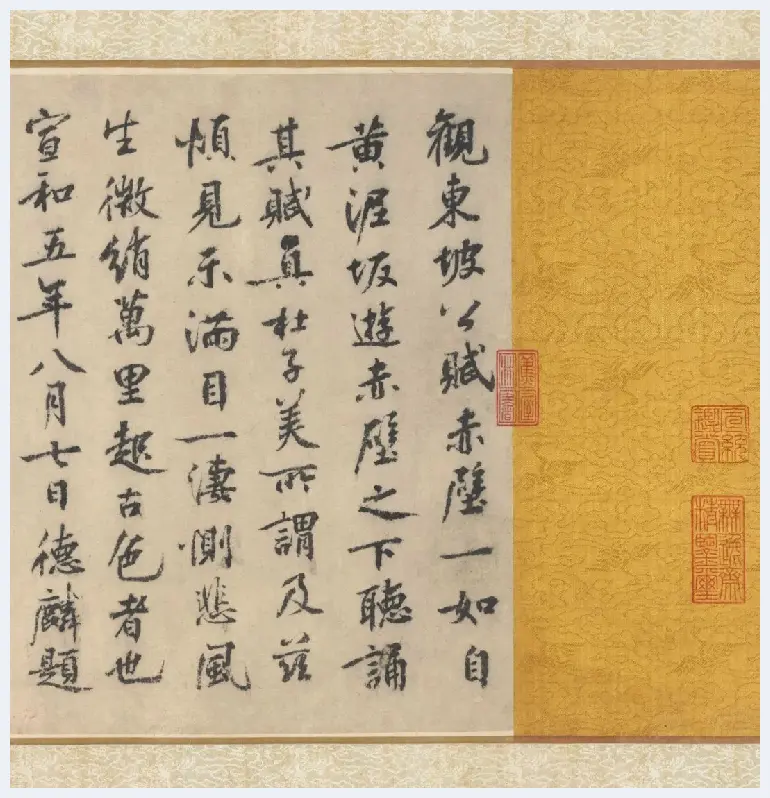 觀東坡公賦赤壁一如自
黃泥坂遊赤壁之下聽誦
其賦真杜子美所謂及茲
煩見示滿目一淒惻悲風
生微綃萬里起古色者也
宣和五年八月七日德麟題
宣統鑑賞
無逸齋精鑒璽